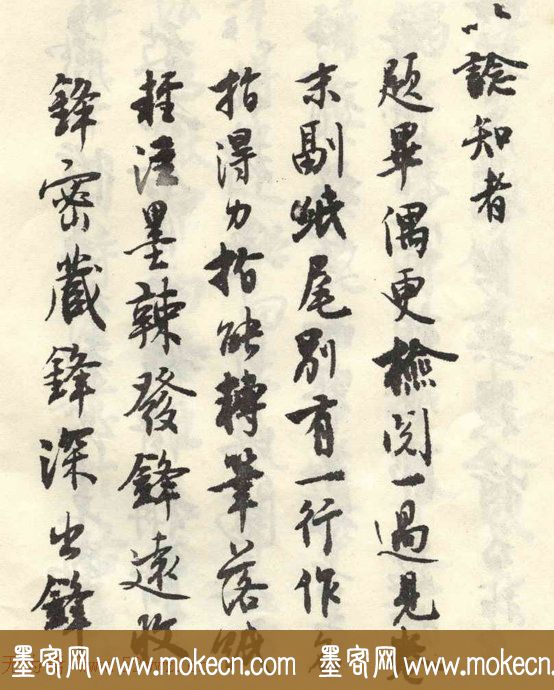 以諗知者
題畢偶更檢閱一過見卷
末副紙尾別有一行作
指得力指能轉筆落紙
輕注墨辣發鋒遠收
鋒密藏鋒深出鋒
墨客网 www.mokecn.com 墨客网 www.mokecn.com